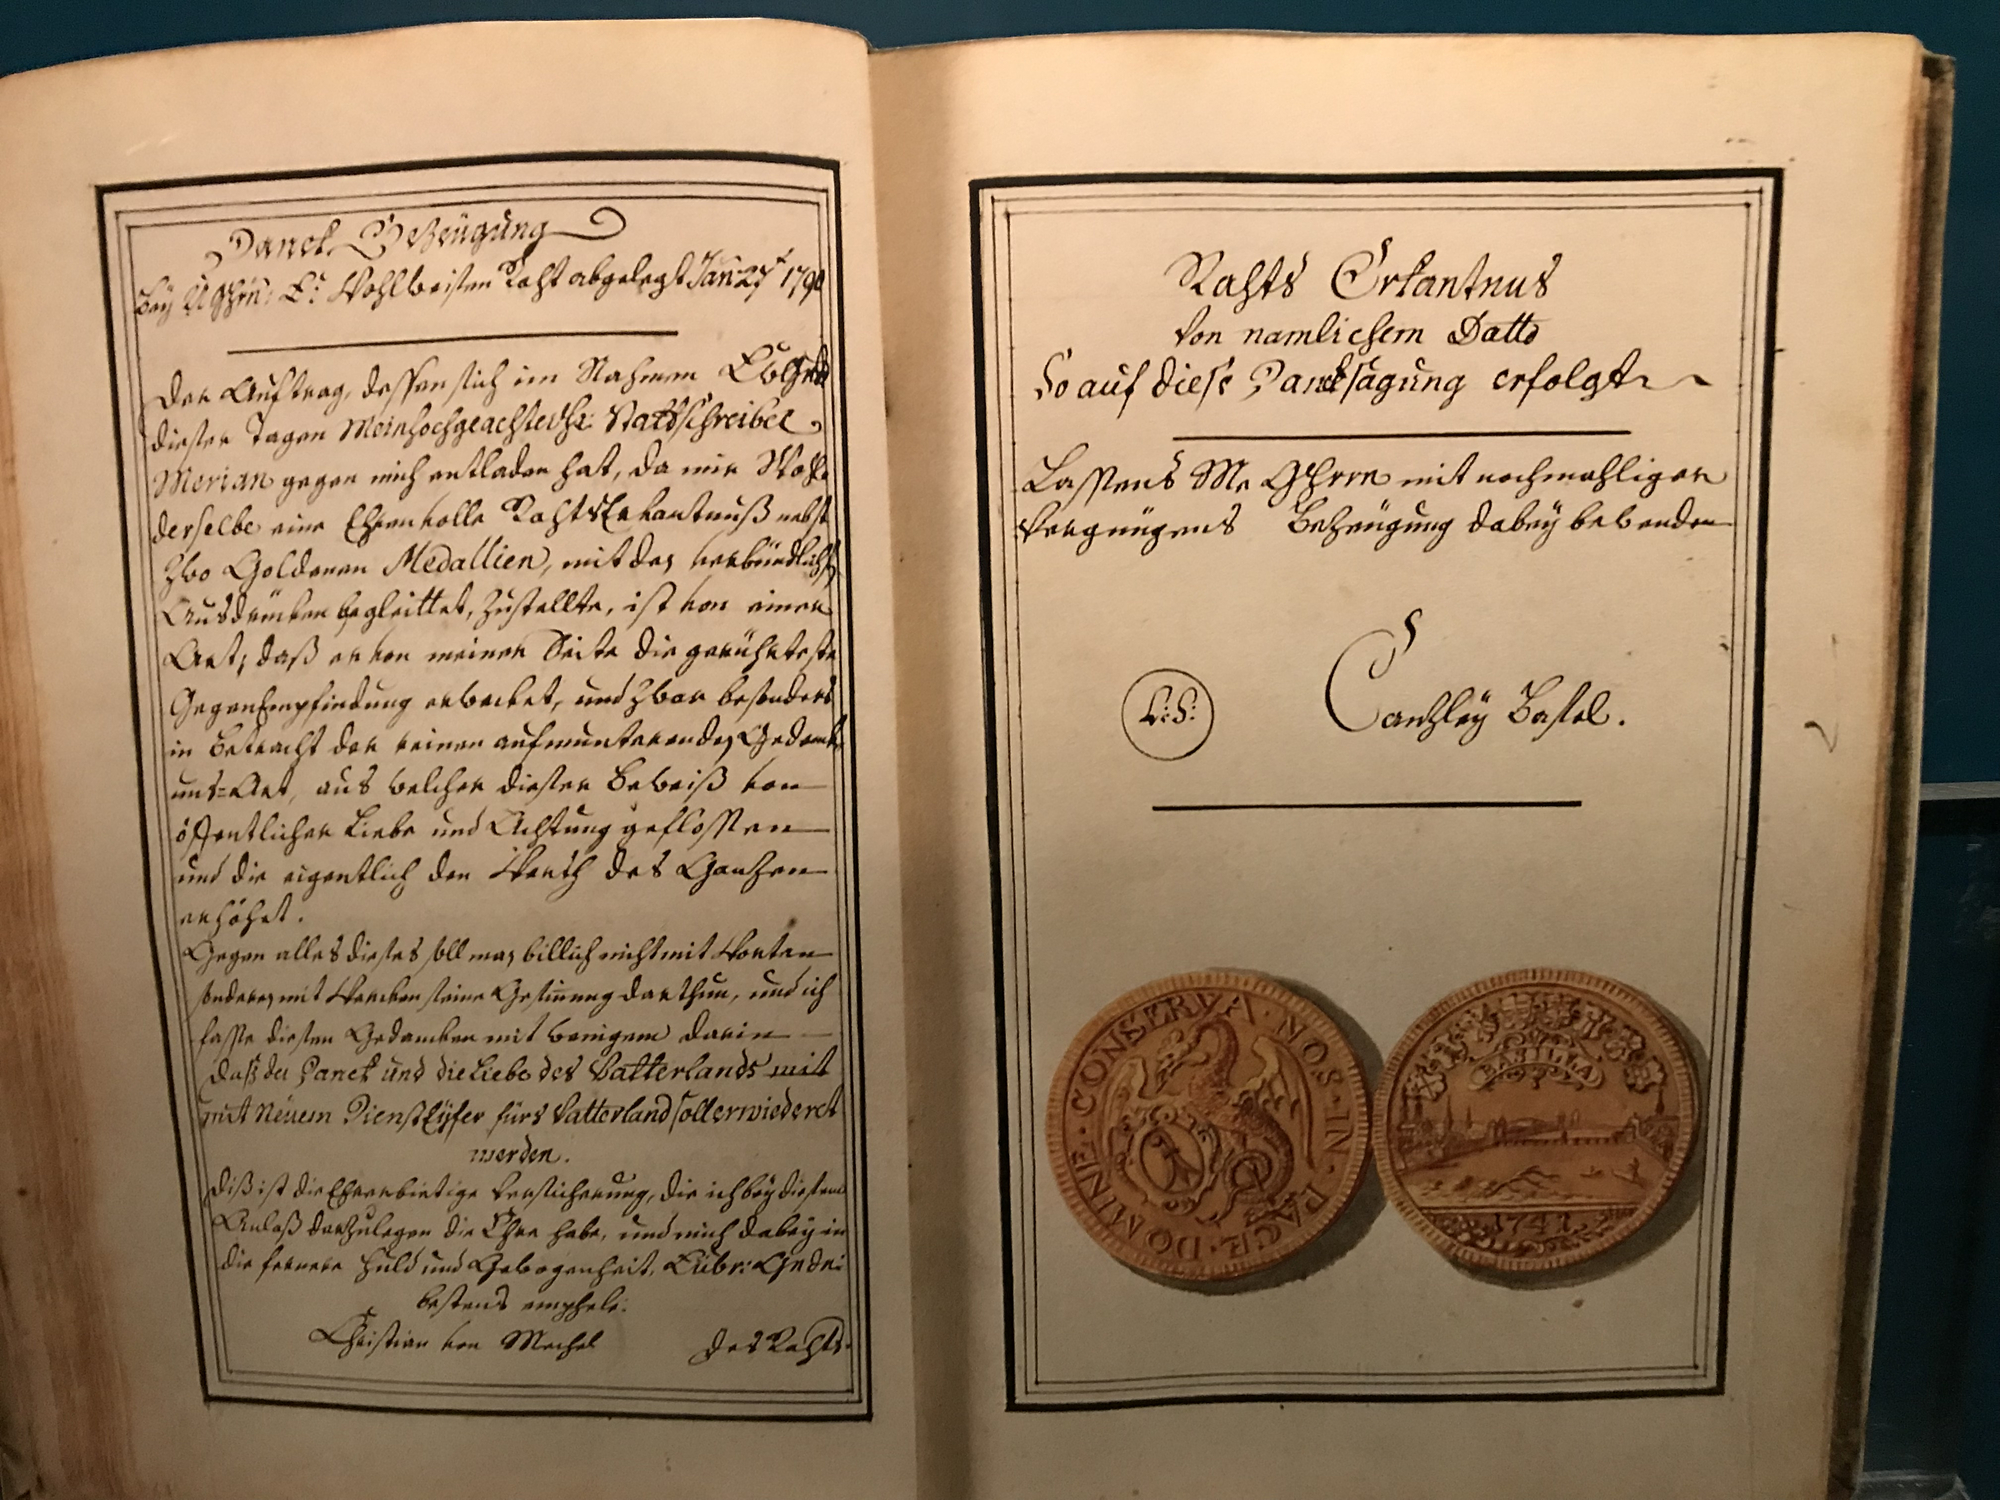 Danck Bezeügung
Bey UGHrn: E: Wohlweisen Raht abgelegt Jan: 27t 1790
Der Auftrag, dessen sich im Nahmen EwGnd
dieser Tagen Meinhochgeachter Hr: Stattschreiber
Merian gegen mich entladen hat, da mir Wohl-
derselbe eine Ehrenvolle RahtsErkantnuß nebst
zwo Goldenen Medallien, mit den verbündlichst
Ausdrüken begleittet, zustellte, ist von einer
Art, daß er von meiner Seite die gerührteste
Gegenempfindung erwecket, und zwar besonders
in Betracht der reinen aufmunterenden Gedenk-
uns-Art, aus welcher dieser Beweiß von
öffentlicher Liebe und Achtung geflossen
und die eigentlich den Werth des Ganzen
erhöhet.
Gegen alles dieses soll man billich nicht mit Worten
sonderen mit Wercken seine Gesinnung darthun, und ich
fasse diesen Gedancken mit wenigem darin
Daß der Danck und die Liebe des Vatterlands mit
mit Neuem DienstEyfer fürs Vatterland soll erwiederet
werden.
Diß ist die Ehrerbietige Versicherung, die ich bey diesem
Anlaß darzulegen die Ehre habe, und mich dabey in
die fernere Huld und Gewogenheit,
bestens emphele:
Christian von Mechel
des Rahts.
Rahts Erkantnus
von namlichem Datto
So auf diese Dancksagung erfolgt
Lassens Me GHrrn mit nochmahliger
Vergnügens Bezeügung dabey bewenden
L: S:
Canzley Basel.
DOMINE · CONSERVA · NOS · IN · PACE ·
BASILEA
1741